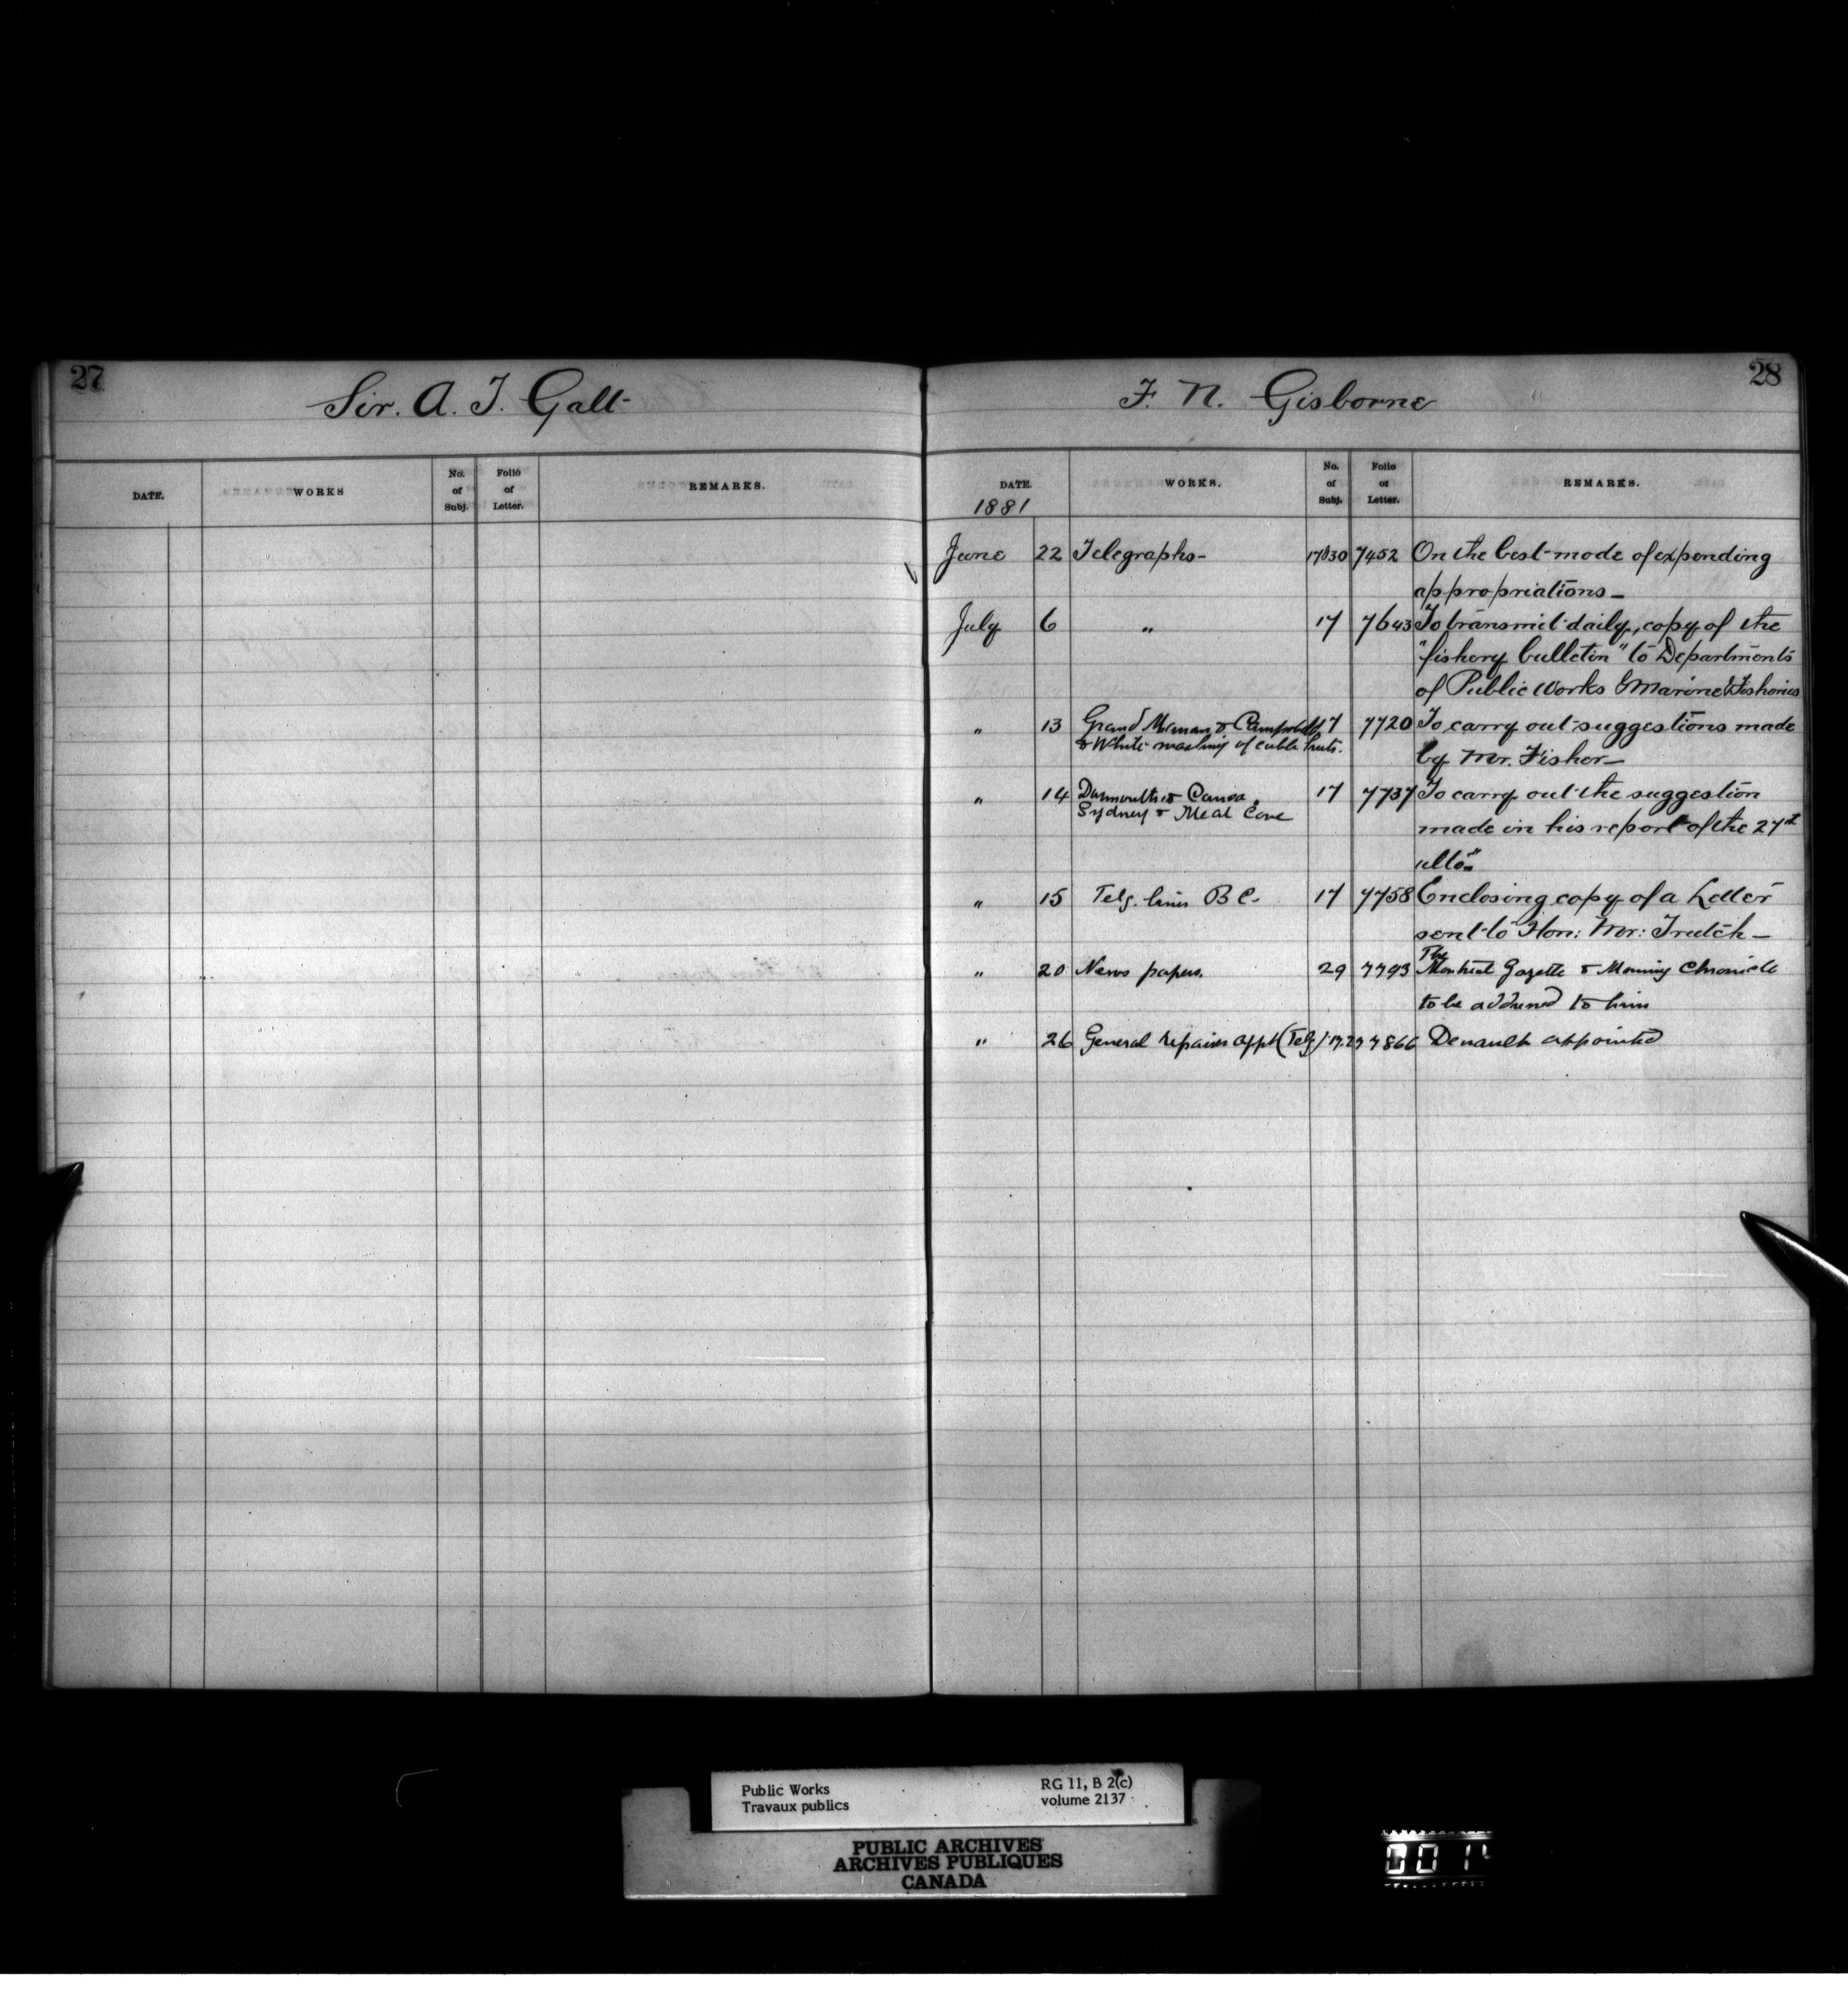 27
Sir. A. T. Galt
DATE.
WORKS
No. of Subj.
Folio of Letter.
REMARKS.
28
F. N. Gisborne
DATE.
WORKS.
No. of Subj.
Folio of Letter.
REMARKS.
1881
June 22 Telegraphs- 17 30 7452 On the best mode of expending
appropriations_
July 6 " 17 7643 To transmit daily, copy of the
"fishery bulletin" to Departments
of Public Works & Marine & Fisheries
" 13 Grand Manan & Campobello 17 7720 To carry out suggestions made
& White washing of cable huts. by Mr. Fisher_
" 14 Darmouth & Canso 17 7737 To carry out the suggestion
Sydney & Meat Cove made in his report of the 27th
ulto"
" 15 Telg. lines B C. 17 7758 Enclosing copy of a Letter
sent to Hon: Mr: Trutch_
" 20 News papers. 29 7793 The Montreal Gazette & Morning Chronicle
to be addressed to him
" 26 General repairer appt (Telg) 17.29 7866 Denault appointed
Public Works
Travaux publics
RG 11, B 2(c)
volume 2137
PUBLIC ARCHIVES
ARCHIVES PUBLIQUES
CANADA